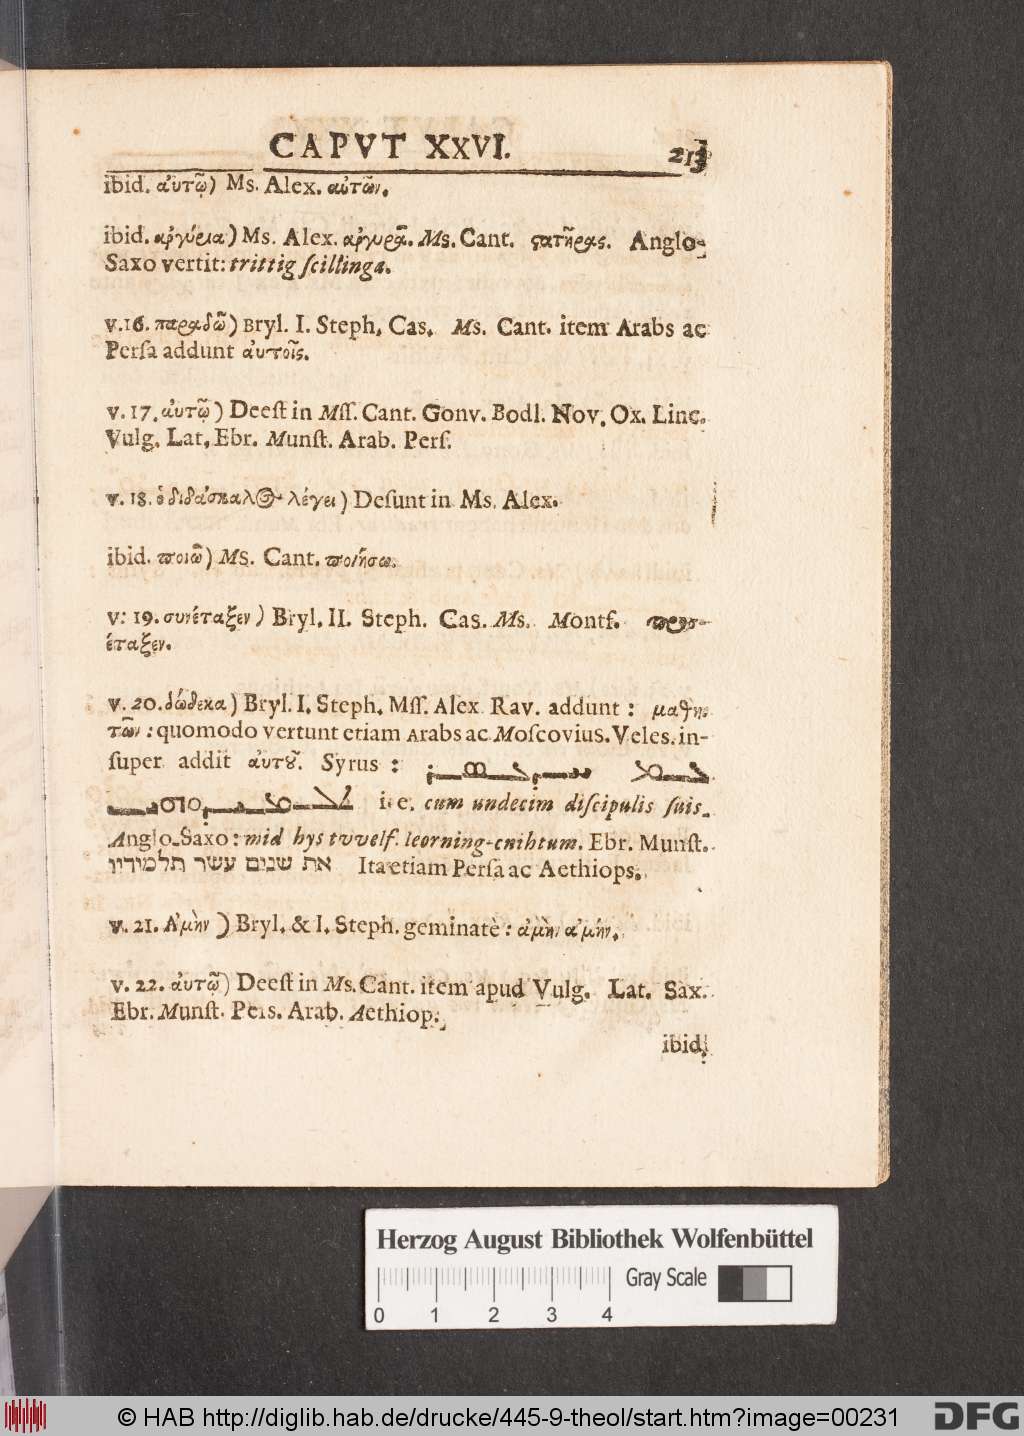 CAPVT XXVI. 213
ibid. ἀυτῷ) Ms. Alex. αὐτῶν.
ibid. αργύρια) Ms. Alex. αργυρᾶ. Ms. Cant. ϛατῆρας. Anglo-
Saxo vertit: trittig ſcillinga.
v.16. παραδῶ) Bryl. I. Steph. Cas. Ms. Cant. item Arabs ac
Perſa addunt ἀυτοῖς.
v. 17. ἀυτῷ) Deeſt in Mſſ. Cant. Gonv. Bodl. Nov. Ox. Linc.
Vulg. Lat. Ebr. Munſt. Arab. Perſ.
v. 18. ὁ διδάσκαλ⊕ λέγει) Deſunt in Ms. Alex.
ibid. ποιῶ) Ms. Cant. ποιήσω.
v: 19. συνέταξεν) Bryl. II. Steph. Cas. Ms. Montf. προσ-
έταξεν.
v. 20. δώδεκα) Bryl. I. Steph. Mſſ. Alex Rav. addunt : μαθη-
τῶν : quomodo vertunt etiam Arabs ac Moſcovius. Veles. in-
ſuper addit ἀυτȣ͂. Syrus :
i. e. cum undecim diſcipulis ſuis.
Anglo-Saxo : mid hys tvvelf. leorning-cnihtum. Ebr. Munſt.
את שנים עשר תלמידיו Ita etiam Perſa ac Aethiops.
v. 21. Ἀμὴν) Bryl. & I. Steph. geminatè : ἀμὴν ἀμήν.
v. 22. ἀυτῷ) Deeſt in Ms. Cant. item apud Vulg. Lat. Sax.
Ebr. Munſt. Pers. Arab. Aethiop.
ibid.
Herzog August Bibliothek Wolfenbüttel
Gray Scale
0 1 2 3 4
© HAB http://diglib.hab.de/drucke/445-9-theol/start.htm?image=00231
DFG